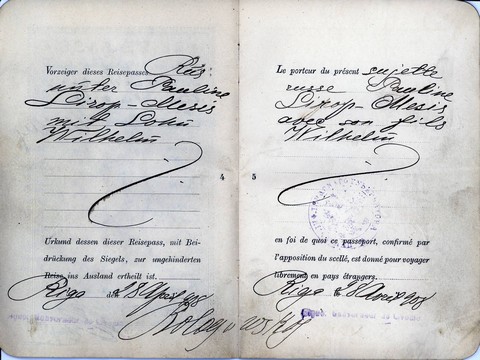 Vorzeiger dieses Reisepasses Rus:
Pauline
Lirop-Mesis
mit Sohn
Wilhelm
4
Urkund dessen dieser Reisepass, mit Bei-
drückung des Siegels, zur ungehinderten
Reise ins Ausland ertheilt ist.
Riga den 28 April 908
Le porteur du présent sujette
russe Pauline
Lirop-Mesis
avec son fils
Wilhelm
5
en foi de quoi ce passeport, confirmé par
l'apposition du scellé, est donné pour voyager
librement en pays étrangers.
Riga 28 Avril 908